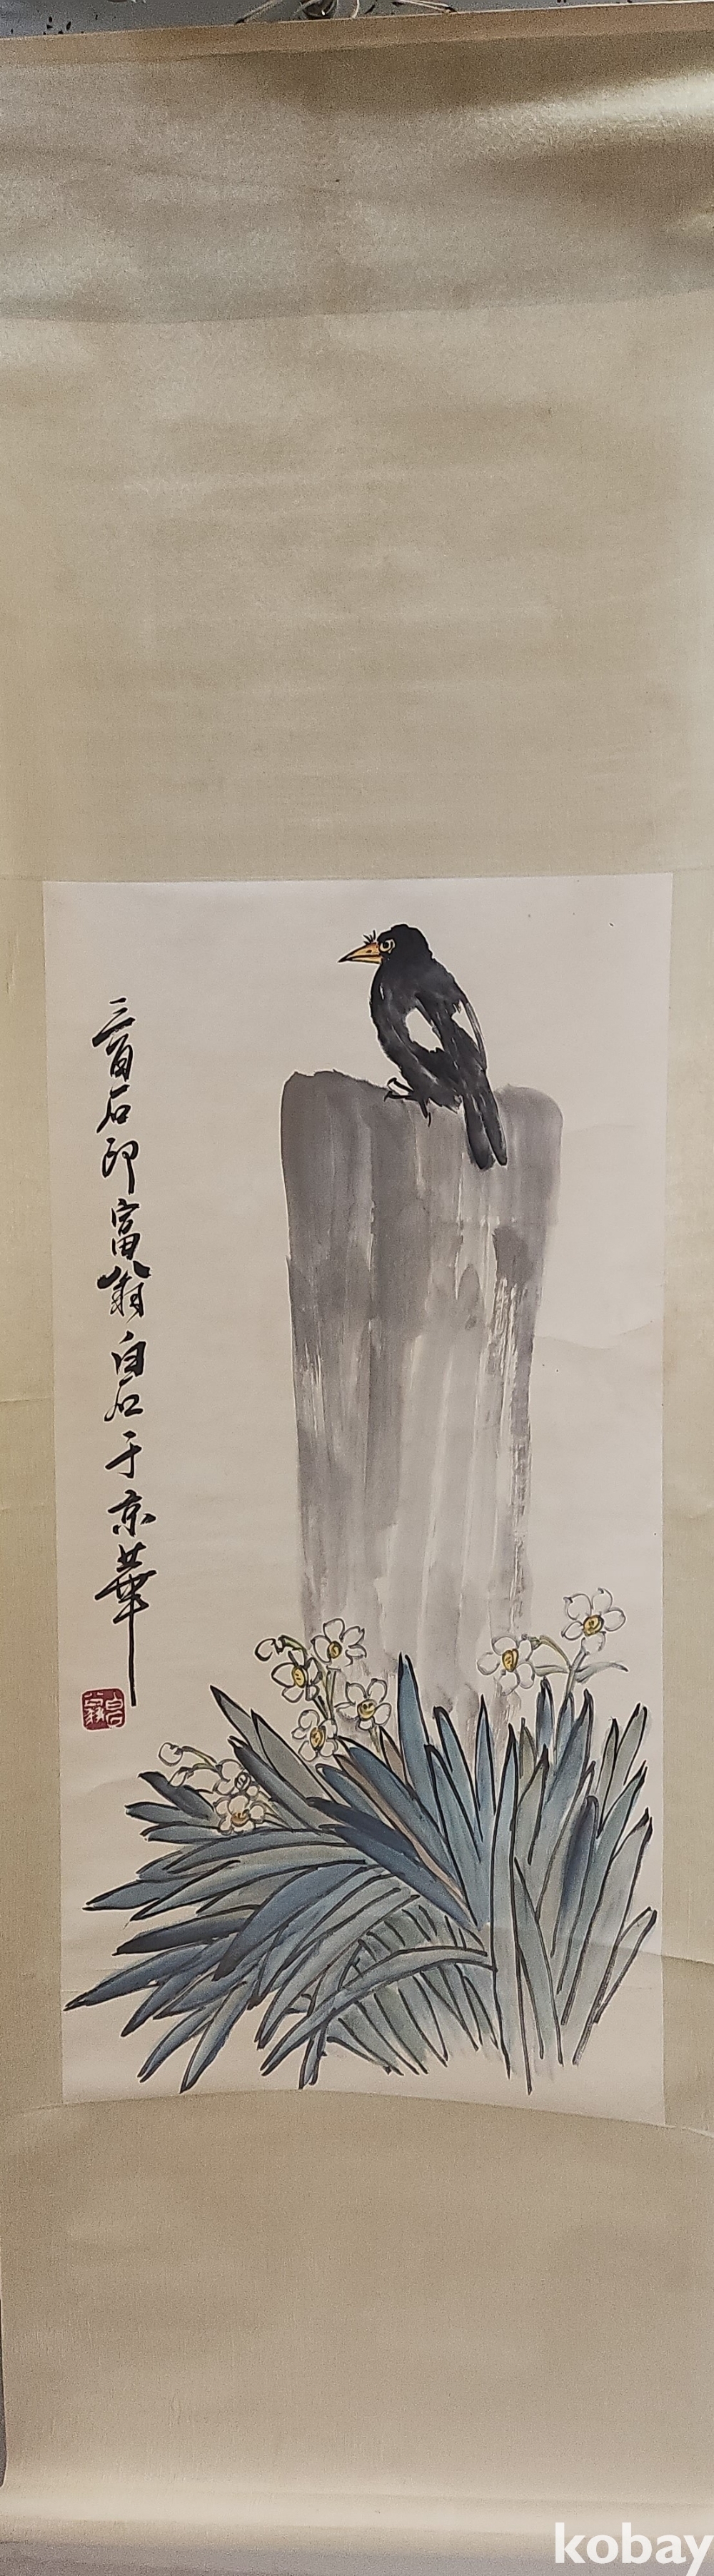 三百石印富翁白石于京華
白石翁
kobay